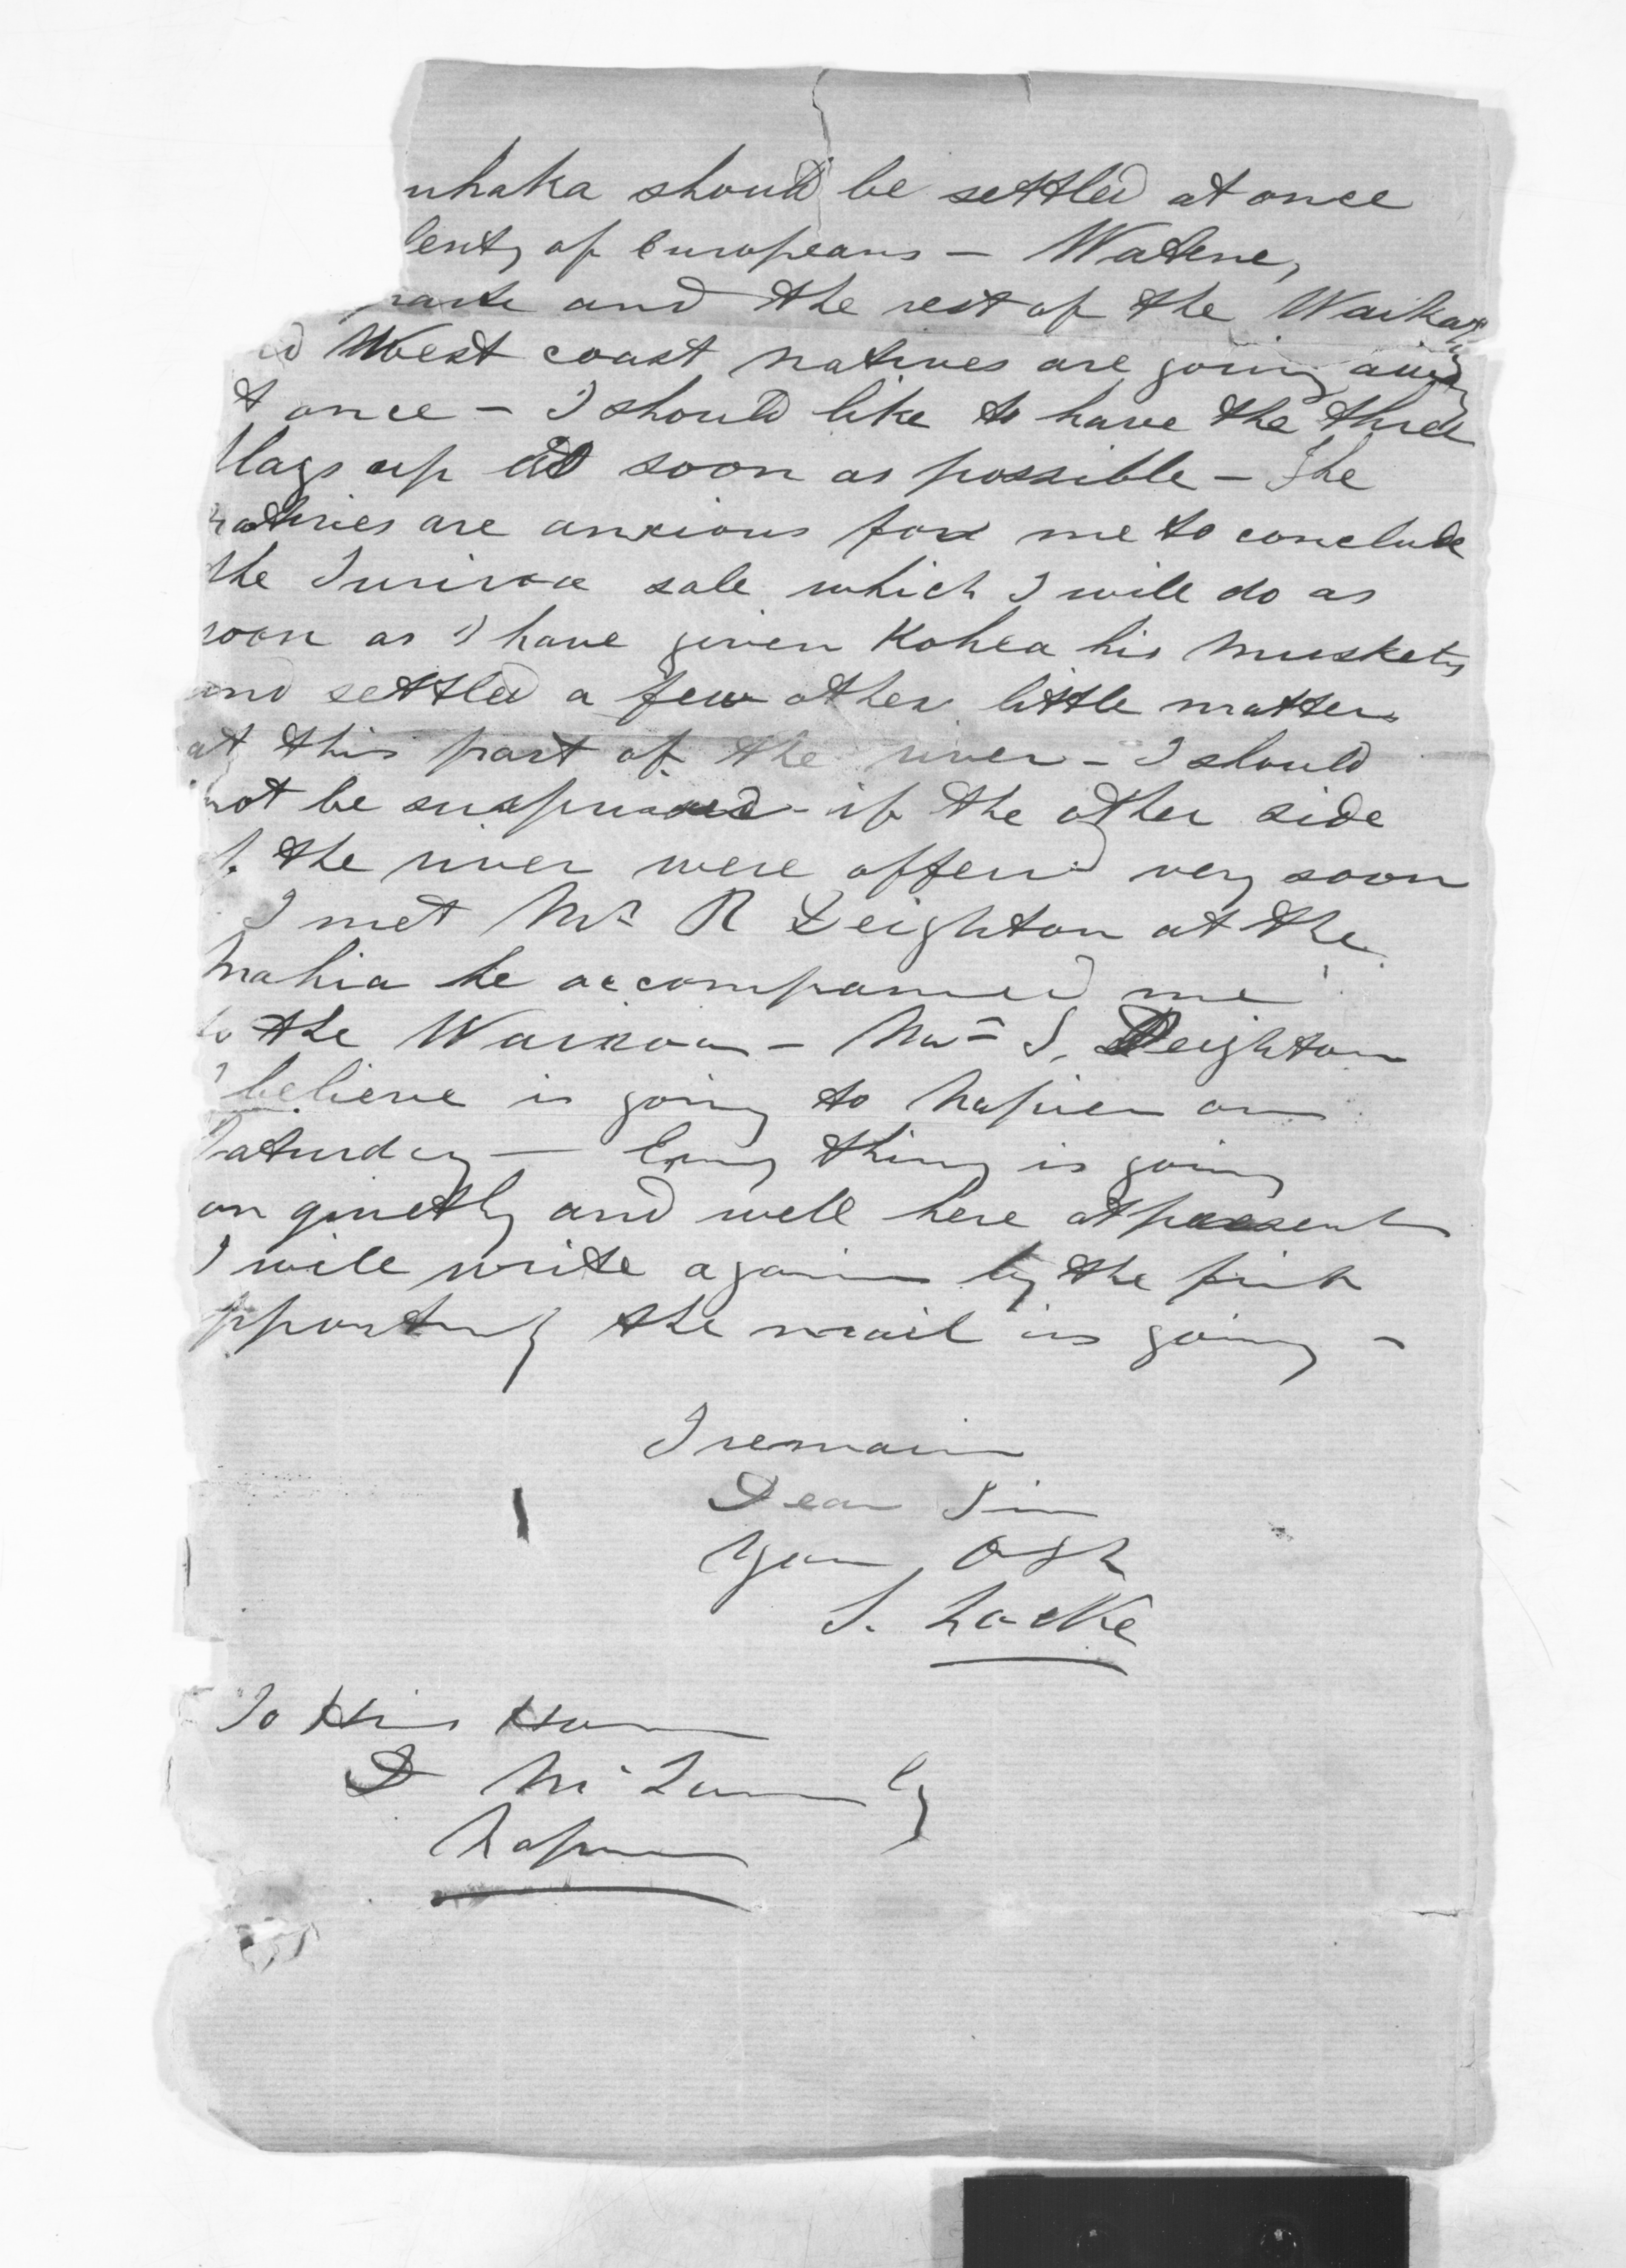 uhaka should be settled at once
lenty of Europeans - Watene,
and the rest of the Waikato
d West coast natives are going away
t once - I should like to have the three
flags up as soon as possible - The
natives are anxious for me to conclude
the sale which I will do as
soon as I have given Kohea his muskets
and settled a few other little matters
at this part of the river - I should
not be surprised if the other side
of the river were offered very soon
I met Mr R Deighton at the
Mahia he accompanied me
to the Wairoa - Mr S. Deighton
I believe is going to Napier on
Saturday - Every thing is going
on quietly and well here at present
I will write again by the first
opportunity the mail is going -
I remain
Dear Sir
Your Obt
S. Locke
To His Honor
D McLean Esq
Napier